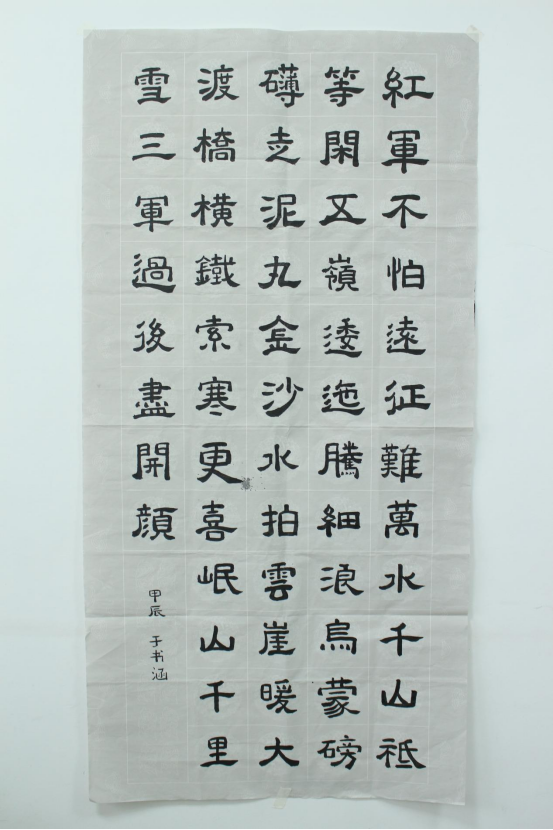 紅軍不怕遠征難萬水千山祗
等閑五嶺逶迤騰細浪烏蒙磅
礴走泥丸金沙水拍雲崖暖大
渡橋橫鐵索寒更喜岷山千里
雪三軍過後盡開顔
甲辰 于书涵